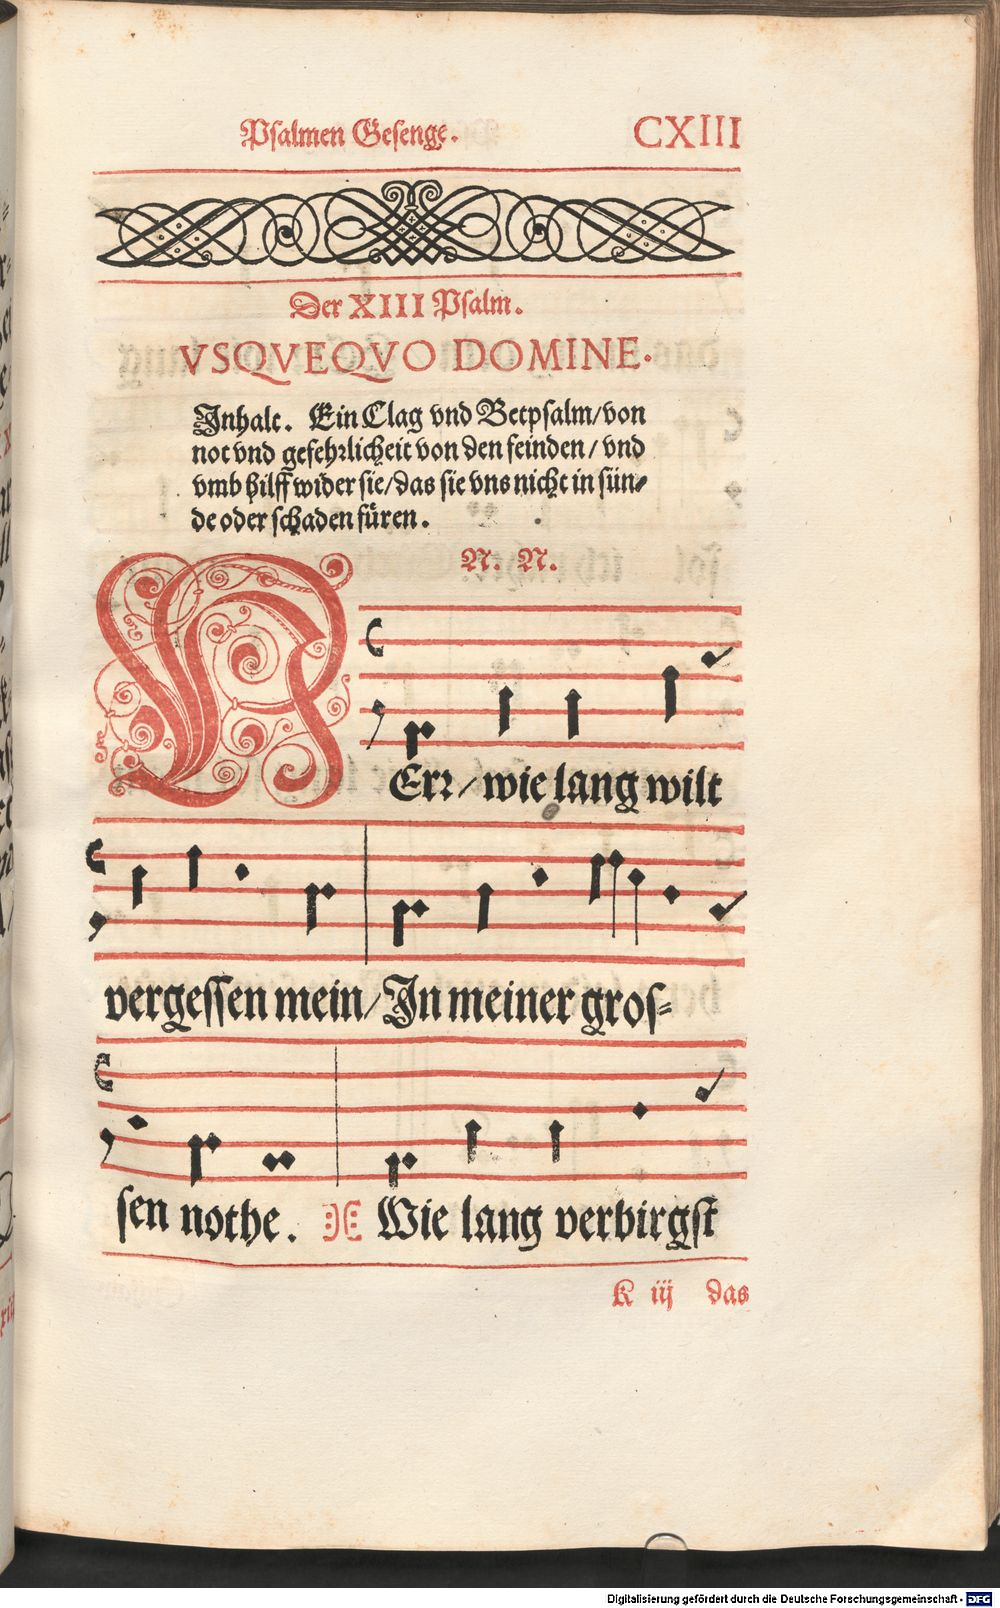 Psalmen Gesenge. CXIII
Der XIII Psalm.
VSQVEQVO DOMINE.
Inhalt. Ein Clag vnd Betpsalm/von
not vnd gefehrlicheit von den feinden/ vnd
vmb hilff wider sie/das sie vns nicht in sün⸗
de oder schaden füren.
N. N.
HErr/wie lang wilt
vergessen mein/In meiner gros⸗
sen nothe. Wie lang verbirgst
K iij das
Digitalisierung gefördert durch die Deutsche Forschungsgemeinschaft - DFG